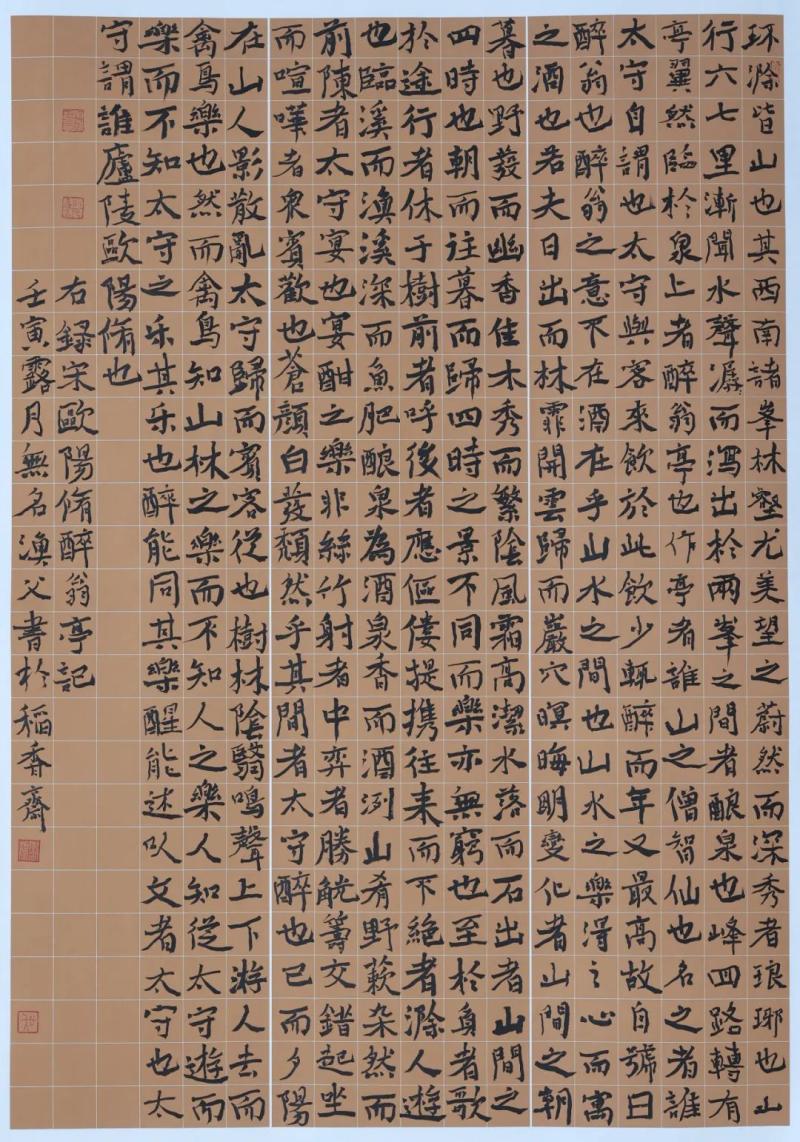 环滁皆山也其西南諸峯林壑尤美望之蔚然而深秀者琅琊也山
行六七里漸聞水聲潺而瀉出於兩峯之間者酿泉也峰回路轉有
亭翼然臨於泉上者醉翁亭也作亭者誰山之僧智仙也名之者誰
太守自謂也太守與客來飲於此飲少輒醉而年又最高故自號曰
醉翁也醉翁之意不在酒在乎山水之間也山水之樂得之心而寓
之酒也若夫日出而林霏開雲歸而巖穴暝晦明變化者山間之朝
暮也野發而幽香佳木秀而繁陰風霜高潔水落而石出者山間之
四時也朝而往暮而歸四時之景不同而樂亦無窮也至於負者歌
於途行者休于樹前者呼後者應傴僂提携往来而不絶者滁人遊
也臨溪而漁溪深而魚肥酿泉為酒泉香而酒洌山肴野蔌杂然而
前陳者太守宴也宴酣之樂非絲竹射者中弈者勝觥籌交錯起坐
而喧嘩者衆賓歡也蒼顏白發頹然乎其間者太守醉也已而夕陽
在山人影散亂太守歸而賓客從也樹林陰翳鳴聲上下游人去而
禽鳥樂也然而禽鳥知山林之樂而不知人之樂人知從太守遊而
樂而不知太守之乐其乐也醉能同其樂醒能述以文者太守也太
守謂誰廬陵歐陽脩也
右録宋歐陽脩醉翁亭記
壬寅露月無名漁父書於稻香齋